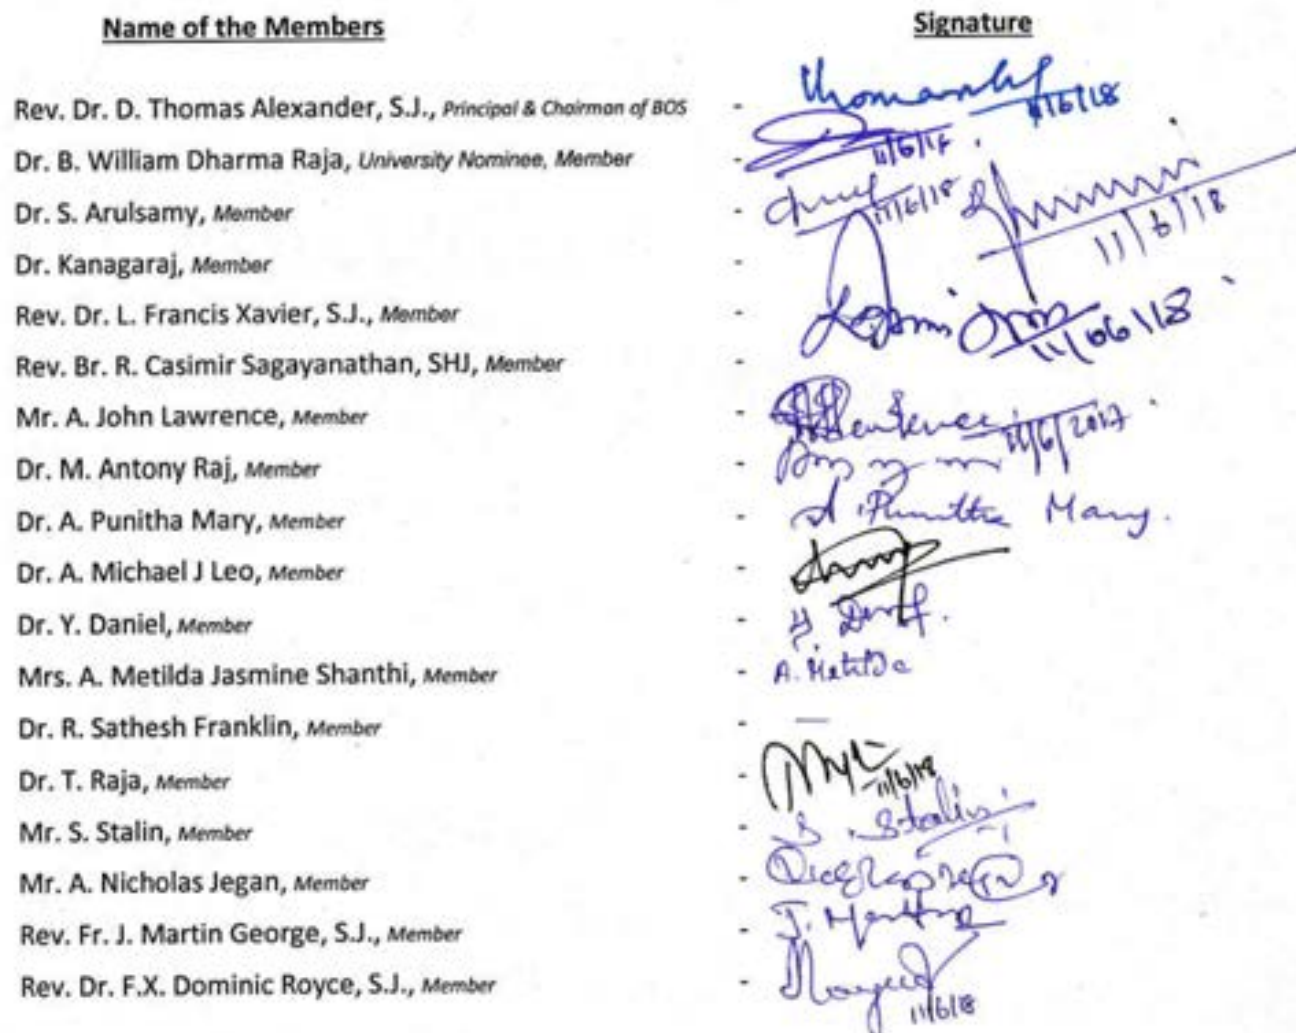 Name of the Members Signature
Rev. Dr. D. Thomas Alexander, S.J., Principal & Chairman of BOS - 11/6/18
Dr. B. William Dharma Raja, University Nominee, Member - 11/6/18
Dr. S. Arulsamy, Member - 11/6/18 11/6/18
Dr. Kanagaraj, Member -
Rev. Dr. L. Francis Xavier, S.J., Member - 11/06/18
Rev. Br. R. Casimir Sagayanathan, SHJ, Member -
Mr. A. John Lawrence, Member - 11/6/2017
Dr. M. Antony Raj, Member -
Dr. A. Punitha Mary, Member - A. Punitha Mary.
Dr. A. Michael J Leo, Member -
Dr. Y. Daniel, Member - Y.
Mrs. A. Metilda Jasmine Shanthi, Member - A. Metilda
Dr. R. Sathesh Franklin, Member - —
Dr. T. Raja, Member - 11/6/18
Mr. S. Stalin, Member - S. Stalin
Mr. A. Nicholas Jegan, Member -
Rev. Fr. J. Martin George, S.J., Member - J.
Rev. Dr. F.X. Dominic Royce, S.J., Member - 11/6/18